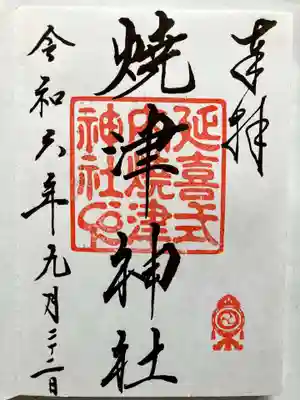 奉拝
延喜式
内焼津
神社印
燒津神社
令和六年九月二十二日